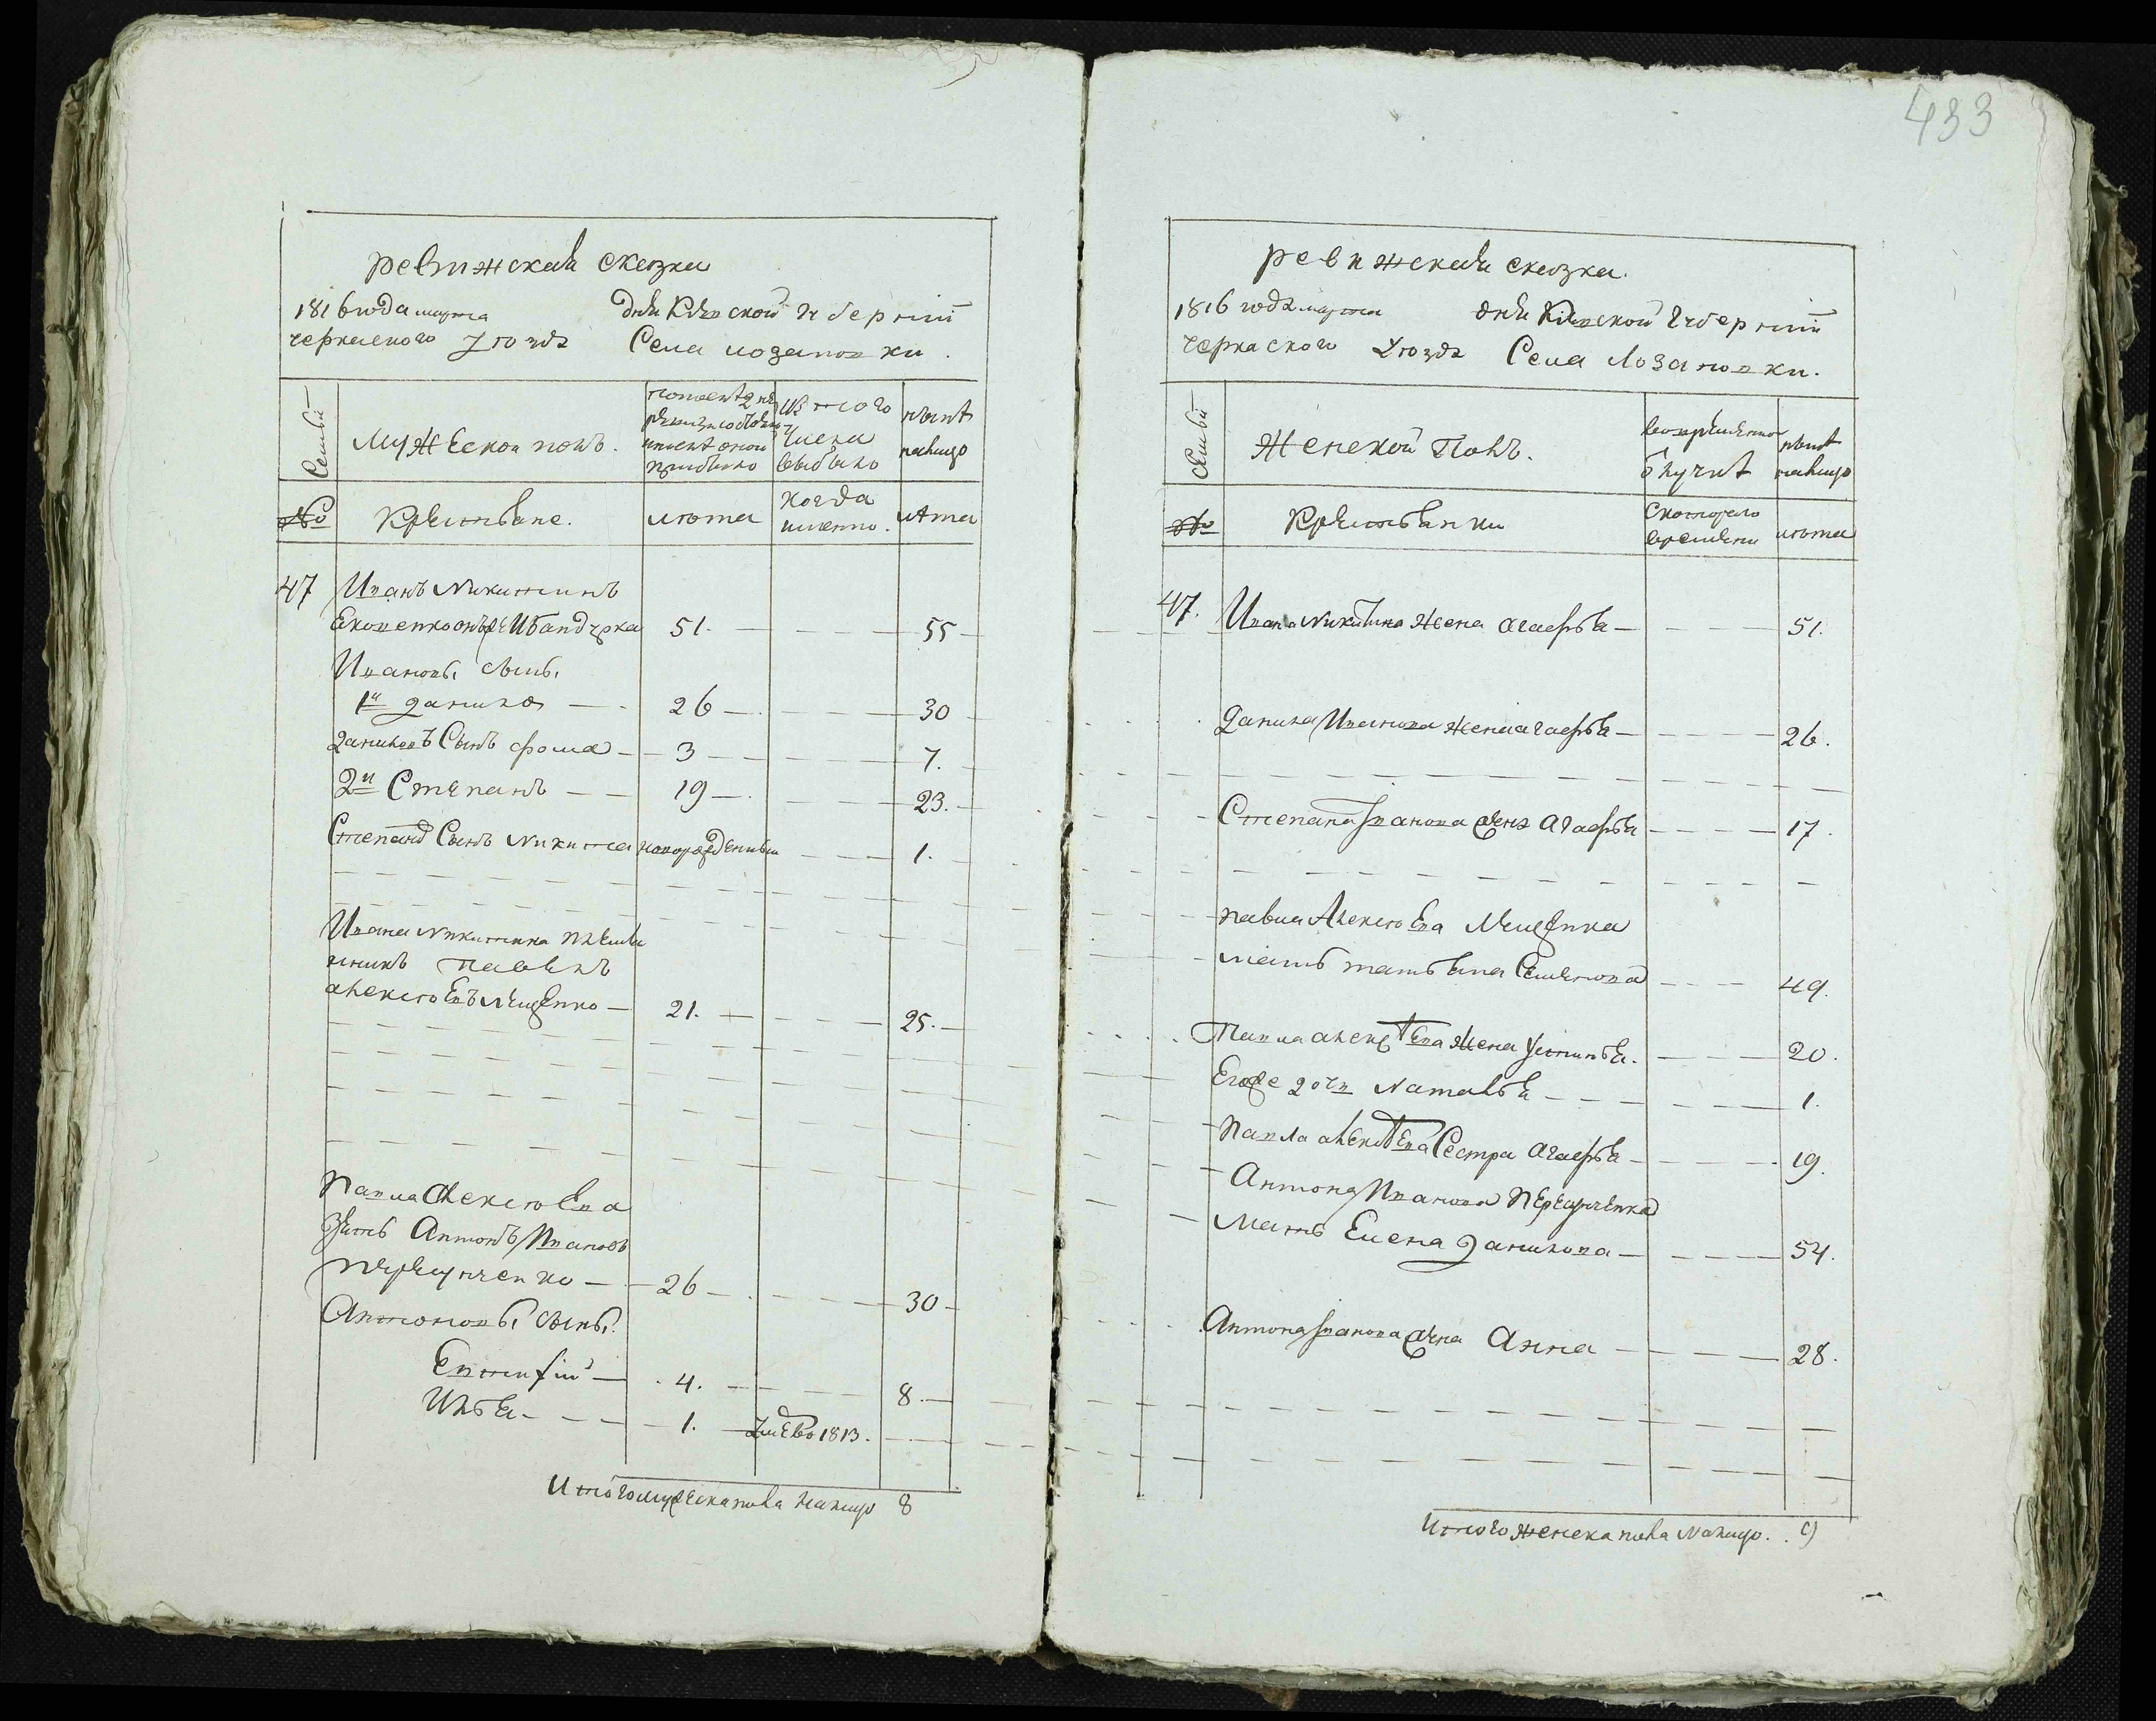 433
ревижская сказка
1816 года марта дня Кіевской губерніи
черкаского уезда Села лозановки.
Семьи
Мужеской полъ.
по последней ревизіи состояло и после оной прибыло
Изъ того числа выбыло
ныне налицо
№
Крестьяне.
лета
когда именно.
лета
47 Иванъ Никитинъ
Яковенко онъ же И Бандурка 51. 55
Ивановы сыны
1й данило 26 30
даниловъ Сынъ фома 3 7.
2й Степанъ 19 23.
Степановъ Сынъ Никита новорожденный 1.
Ивана Никитина племян
никъ павелъ
алексеевъ 21. 25.
Павла алексеева
зять Антонъ Ивановъ
26 30
Антоновы сыны.
Евтифій 4. 8.
Илья 1. умре 1813.
Итого мужеска пола налицо 8
ревижская сказка.
1816 года марта дня Кіевской губерніи
черкаского уезда Села Лозановки.
Семьи
Женской Полъ.
во временной отлучке
ныне налицо
№
Крестьянки
Скоторого времени
лета
47. Ивана Никитина жена агафья 51.
данила Иванова жена агафья 26.
Степана Иванова жена Агафья 17.
павла Алексеева
мать татьяна Семенова 49.
Павла алексеева жена устинья. 20.
Егоже дочь Наталья 1.
павла алексеева Сестра агафья 19.
Антона Иванова
мать Елена данилова 54.
Антона Иванова жена Анна 28.
Итого женска пола Налицо. 9